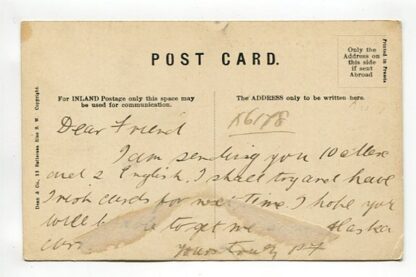 POST CARD.
Only the
Address on
this side
if sent
Abroad
Printed in
For INLAND Postage only this space may
be used for communication.
The ADDRESS only to be written here.
Copyright.
K6178
Dear Friend
I am sending you 10
and 2 English. I shall try and have
Irish cards for next time. I hope you
will be to get me
Yours truly